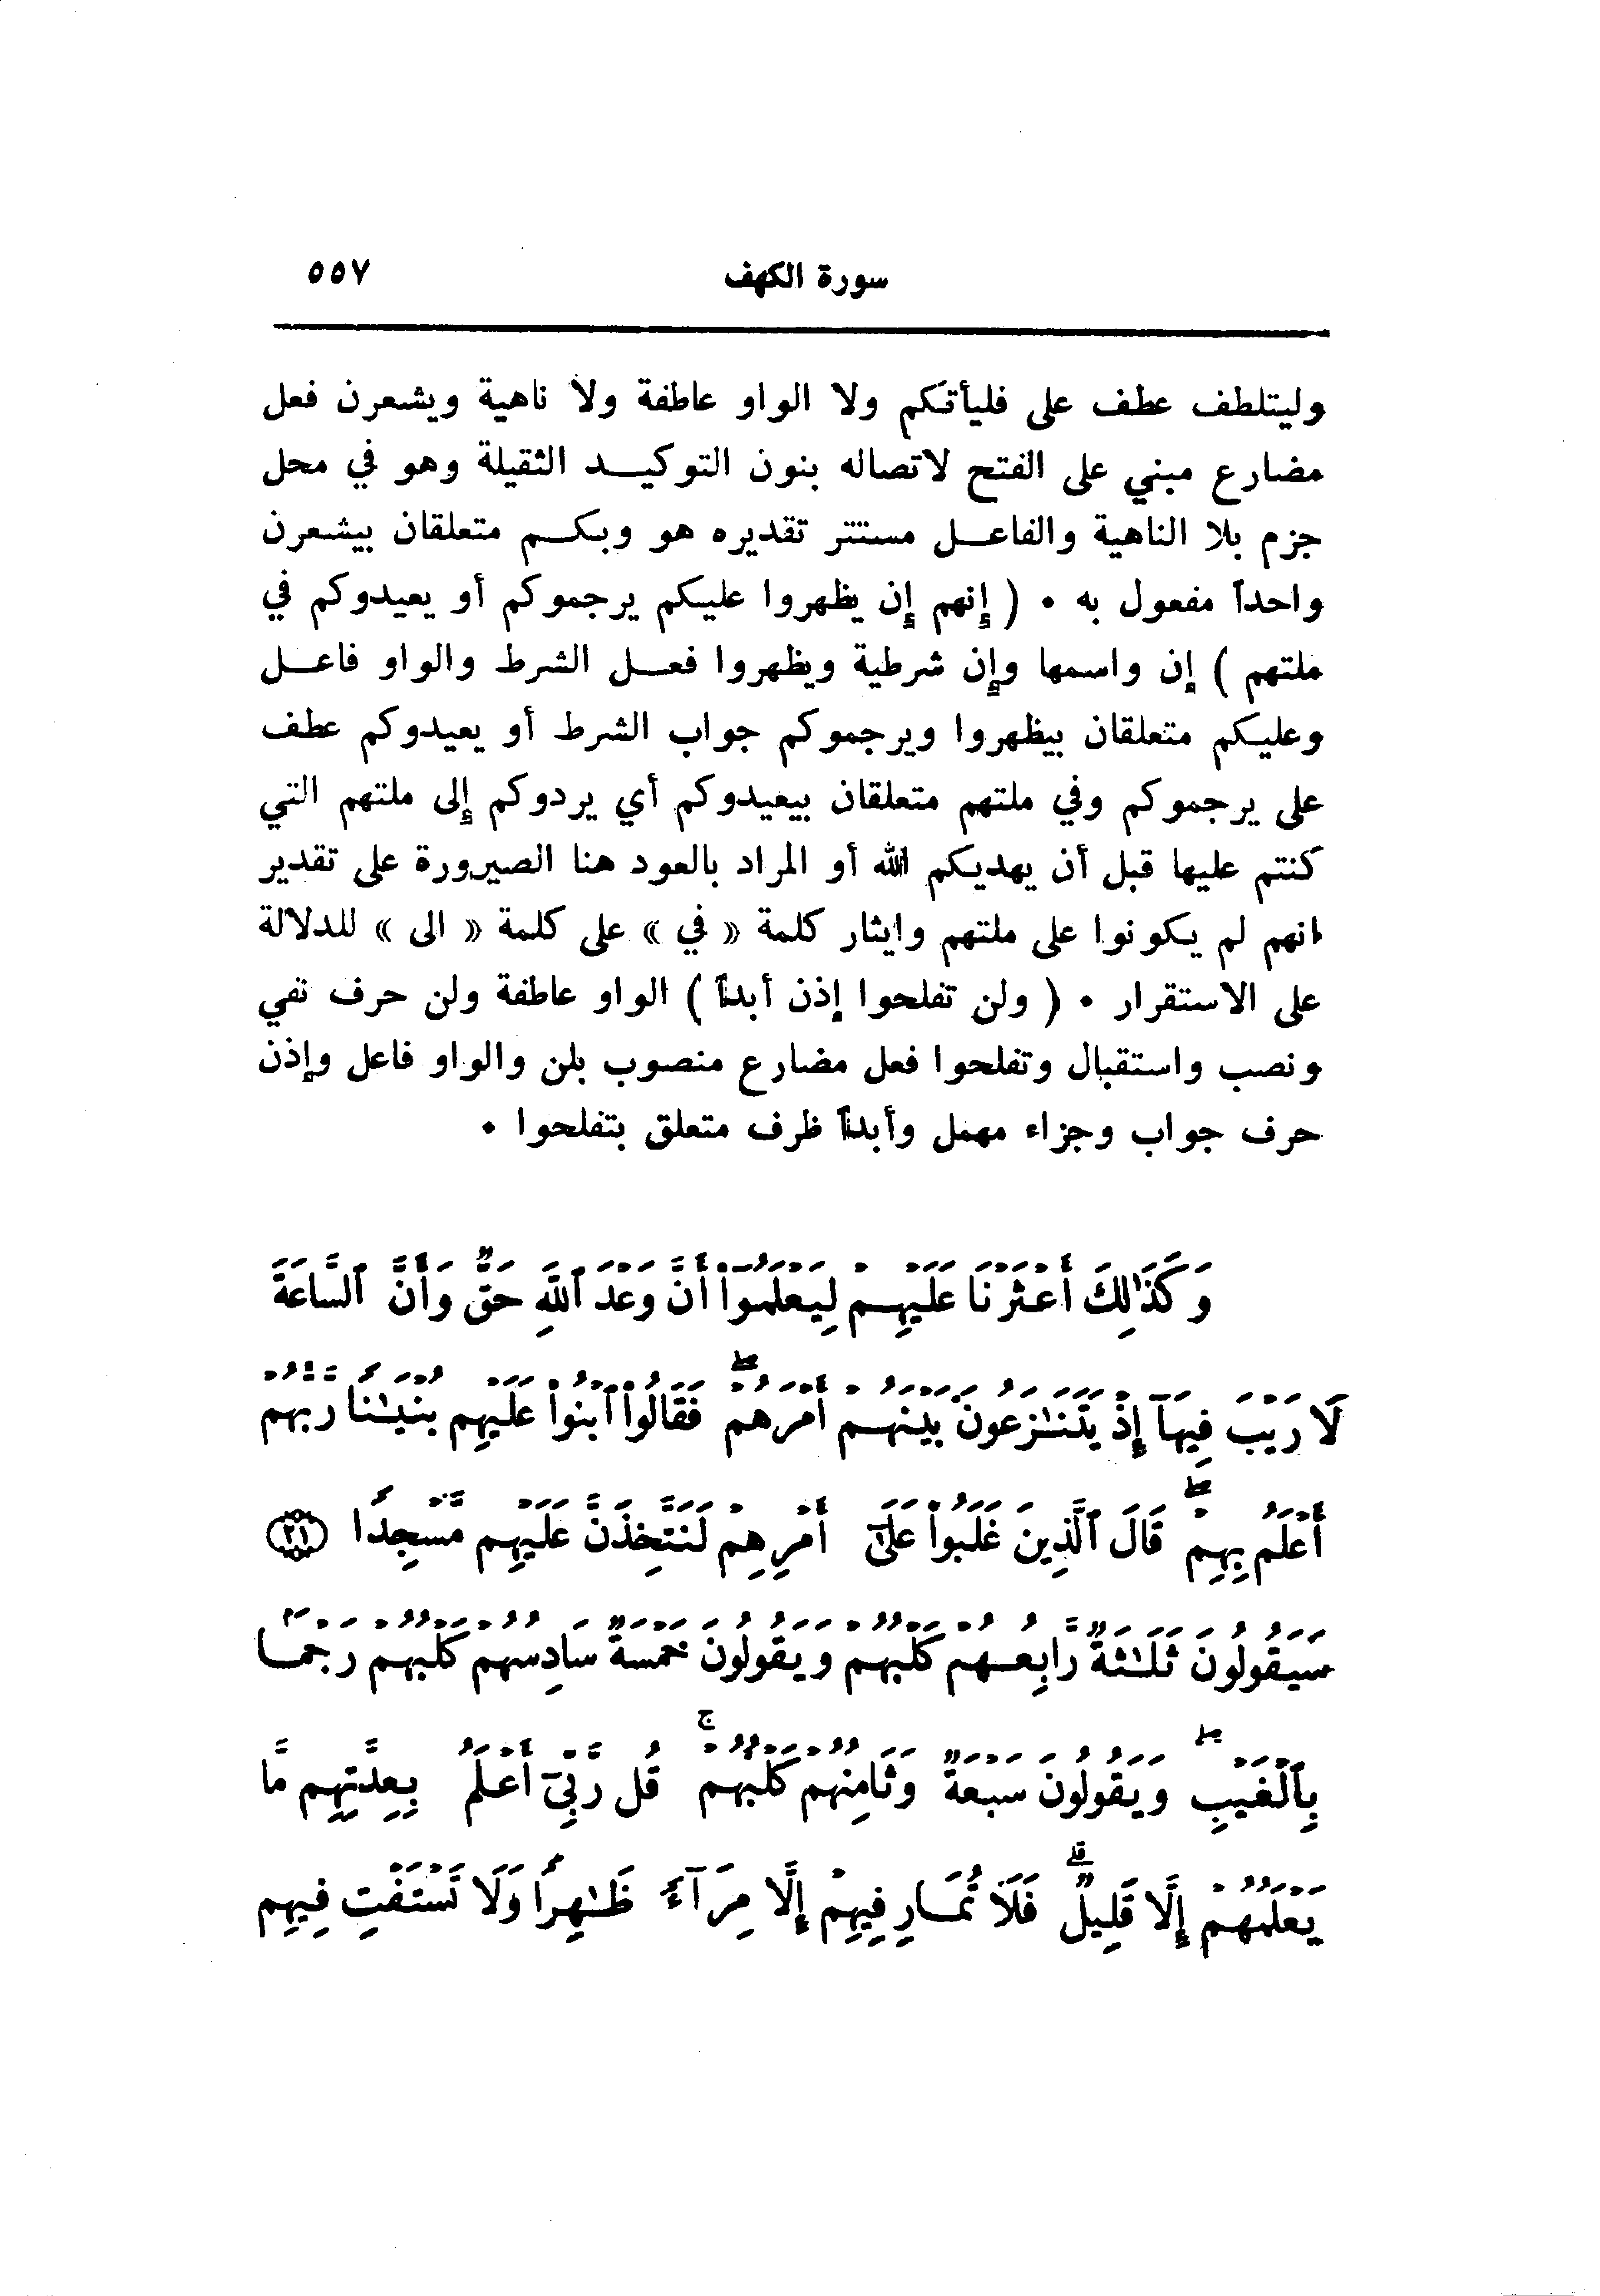 سورة الكهف ٥٥٧
وليتلطف عطف على فليأتكم ولا الواو عاطفة ولا ناهية ويشعرن فعل
مضارع مبني على الفتح لاتصاله بنون التوكيد الثقيلة وهو في محل
جزم بلا الناهية والفاعل مستتر تقديره هو وبكم متعلقان بيشعرن
واحداً مفعول به . ( إنهم إن يظهروا عليكم يرجموكم أو يعيدوكم في
ملتهم ) إن واسمها وإن شرطية ويظهروا فعل الشرط والواو فاعل
وعليكم متعلقان بيظهروا ويرجموكم جواب الشرط أو يعيدوكم عطف
على يرجموكم وفي ملتهم متعلقان بيعيدوكم أي يردوكم إلى ملتهم التي
كنتم عليها قبل أن يهديكم الله أو المراد بالعود هنا الصيرورة على تقدير
انهم لم يكونوا على ملتهم وايثار كلمة « في » على كلمة « الى » للدلالة
على الاستقرار . ( ولن تفلحوا إذن أبداً ) الواو عاطفة ولن حرف نفي
ونصب واستقبال وتفلحوا فعل مضارع منصوب بلن والواو فاعل وإذن
حرف جواب وجزاء مهمل وأبداً ظرف متعلق بتفلحوا .
وَكَذَٰلِكَ أَعْثَرْنَا عَلَيْهِمْ لِيَعْلَمُوٓا۟ أَنَّ وَعْدَ ٱللَّهِ حَقٌّ وَأَنَّ ٱلسَّاعَةَ
لَا رَيْبَ فِيهَآ إِذْ يَتَنَٰزَعُونَ بَيْنَهُمْ أَمْرَهُمْ ۖ فَقَالُوا۟ ٱبْنُوا۟ عَلَيْهِم بُنْيَٰنًا رَّبُّهُمْ
أَعْلَمُ بِهِمْ ۖ قَالَ ٱلَّذِينَ غَلَبُوا۟ عَلَىٰٓ أَمْرِهِمْ لَنَتَّخِذَنَّ عَلَيْهِم مَّسْجِدًا ﴿٢١﴾
سَيَقُولُونَ ثَلَٰثَةٌ رَّابِعُهُمْ كَلْبُهُمْ وَيَقُولُونَ خَمْسَةٌ سَادِسُهُمْ كَلْبُهُمْ رَجْمًۢا
بِٱلْغَيْبِ ۖ وَيَقُولُونَ سَبْعَةٌ وَثَامِنُهُمْ كَلْبُهُمْ ۚ قُل رَّبِّىٓ أَعْلَمُ بِعِدَّتِهِم مَّا
يَعْلَمُهُمْ إِلَّا قَلِيلٌ ۗ فَلَا تُمَارِ فِيهِمْ إِلَّا مِرَآءً ظَٰهِرًا وَلَا تَسْتَفْتِ فِيهِم